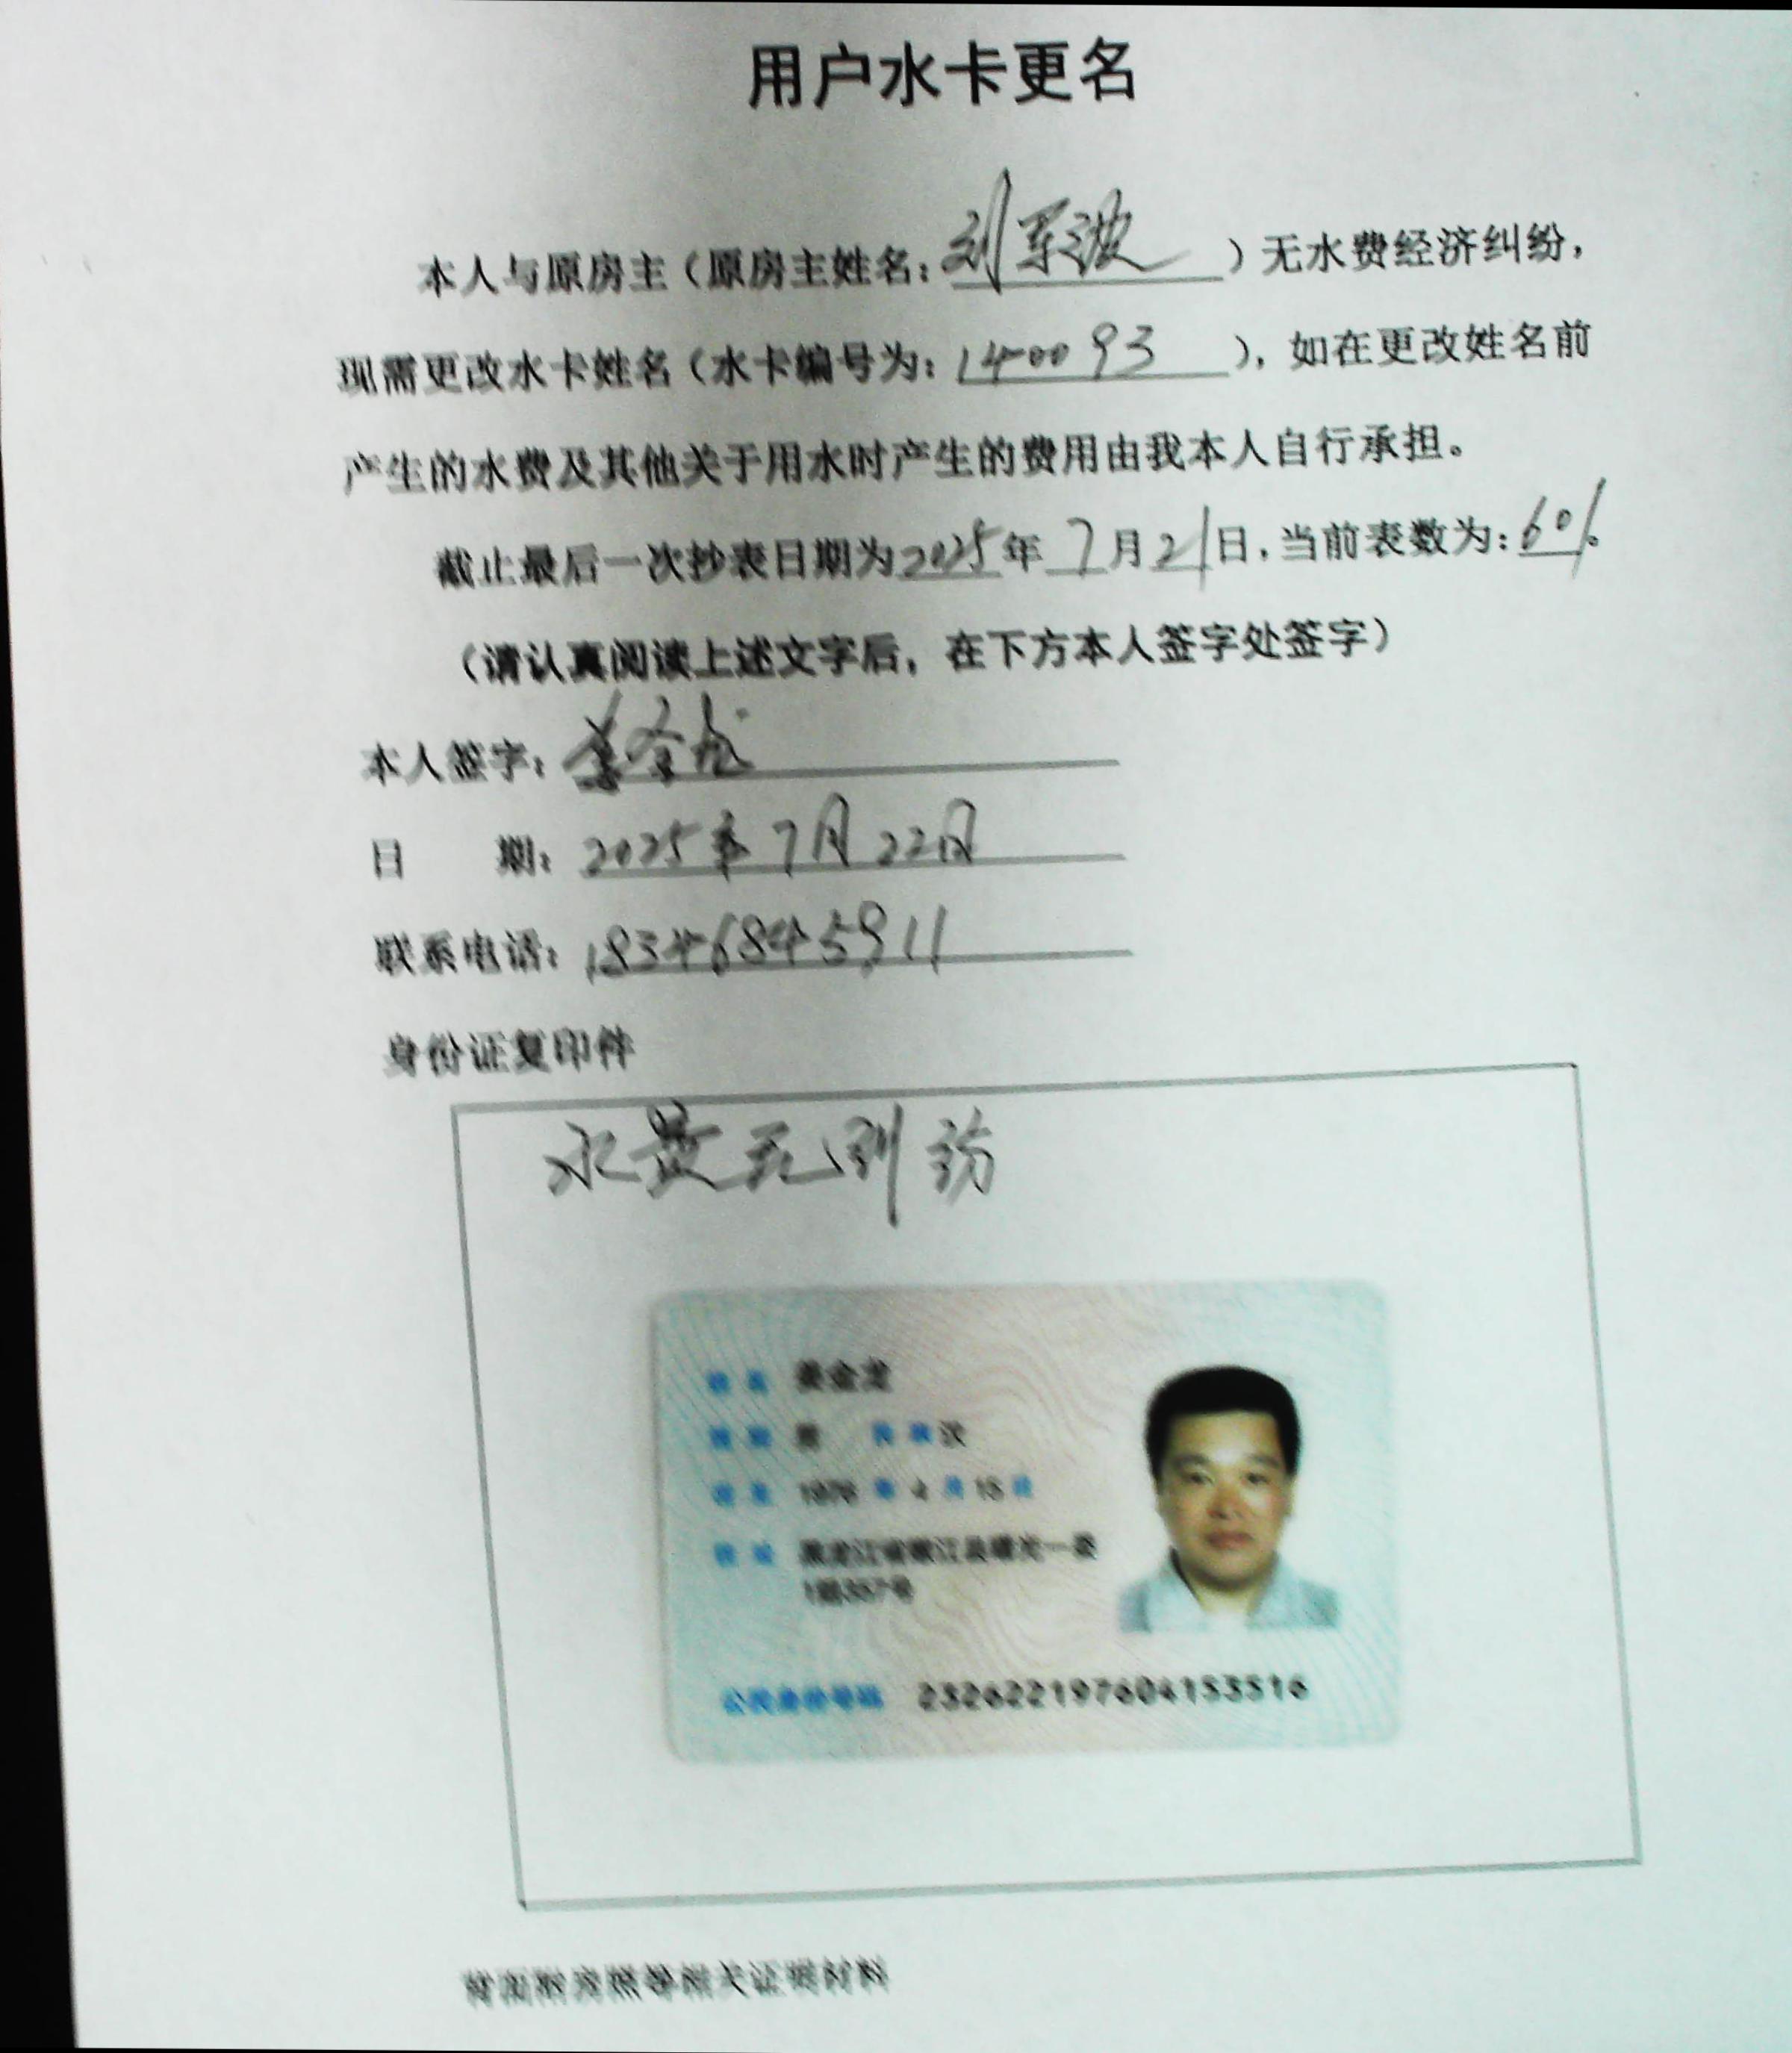 用户水卡更名
本人与原房主（原房主姓名：刘军波）无水费经济纠纷，
现需更改水卡姓名（水卡编号为：1400093），如在更改姓名前
产生的水费及其他关于用水时产生的费用由我本人自行承担。
截止最后一次抄表日期为2025年7月21日，当前表数为：601。
（请认真阅读上述文字后，在下方本人签字处签字）
本人签字：姜金龙
日 期：2025年7月22日
联系电话：18346845911
身份证复印件
水费无纠纷
姓名 姜金龙
性别 男 民族 汉
出生 1976 年 4 月 15 日
住址 黑龙江省嫩江县曙光一委
1组357号
公民身份号码 232622197604153516
背面附房照等相关证明材料